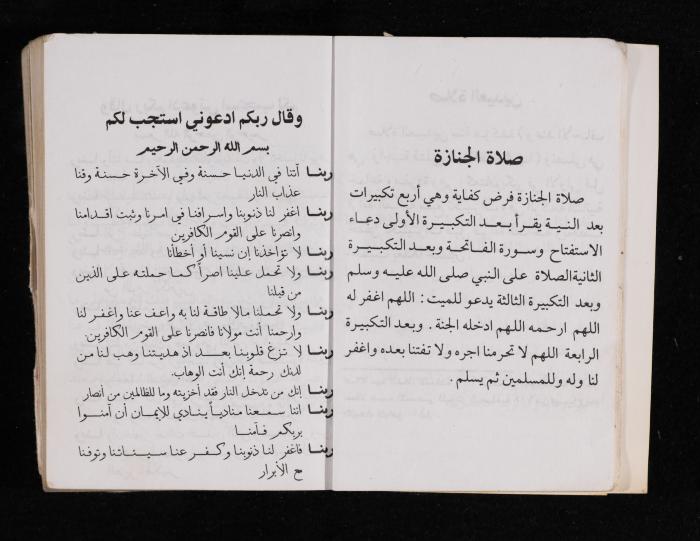 صلاة الجنازة
صلاة الجنازة فرض كفاية وهي أربع تكبيرات
بعد النية يقرأ بعد التكبيرة الأولى دعاء
الاستفتاح وسورة الفاتحة وبعد التكبيرة
الثانية الصلاة على النبي صلى الله عليه وسلم
وبعد التكبيرة الثالثة يدعو للميت : اللهم اغفر له
اللهم ارحمه اللهم ادخله الجنة . وبعد التكبيرة
الرابعة اللهم لا تحرمنا اجره ولا تفتنا بعده واغفر
لنا وله وللمسلمين ثم يسلم .
وقال ربكم ادعوني استجب لكم
بسم الله الرحمن الرحيم
ربنا آتنا في الدنيا حسنة وفي الآخرة حسنة وقنا
عذاب النار
ربنا اغفر لنا ذنوبنا واسرافنا في امرنا وثبت اقدامنا
وانصرنا على القوم الكافرين
ربنا لا تؤاخذنا إن نسينا أو أخطأنا
ربنا ولا تحمل علينا اصراً كما حملته على الذين
من قبلنا
ربنا ولا تحملنا مالا طاقة لنا به واعف عنا واغفر لنا
وارحمنا أنت مولانا فانصرنا على القوم الكافرين
ربنا لا تزغ قلوبنا بعد اذ هديتنا وهب لنا من
لدنك رحمة إنك أنت الوهاب.
ربنا إنك من تدخل النار فقد أخزيته وما للظالمين من أنصار
ربنا اننا سمعنا منادياً ينادي للإيمان أن آمنوا
بربكم فآمنا
ربنا فاغفر لنا ذنوبنا وكفر عنا سيئاتنا وتوفنا
مع الأبرار